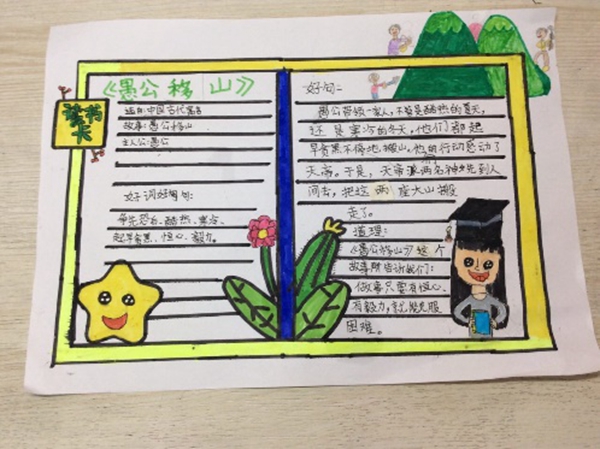 《愚公移山》
读书卡
选自:中国古代寓言
故事:愚公移山
主人公:愚公
好词好句:
争先恐后、酷热、寒冷、
起早贪黑、恒心、毅力。
好句:
愚公带领一家人,不管是酷热的夏天,
还是寒冷的冬天,他们都起
早贪黑不停地搬山。他的行动感动了
天帝。于是,天帝派两名神仙到人
间去,把这两座大山搬
走了。
道理:
《愚公移山》这个
故事告诉我们:
做事只要有恒心,
有毅力,就能克服
困难。